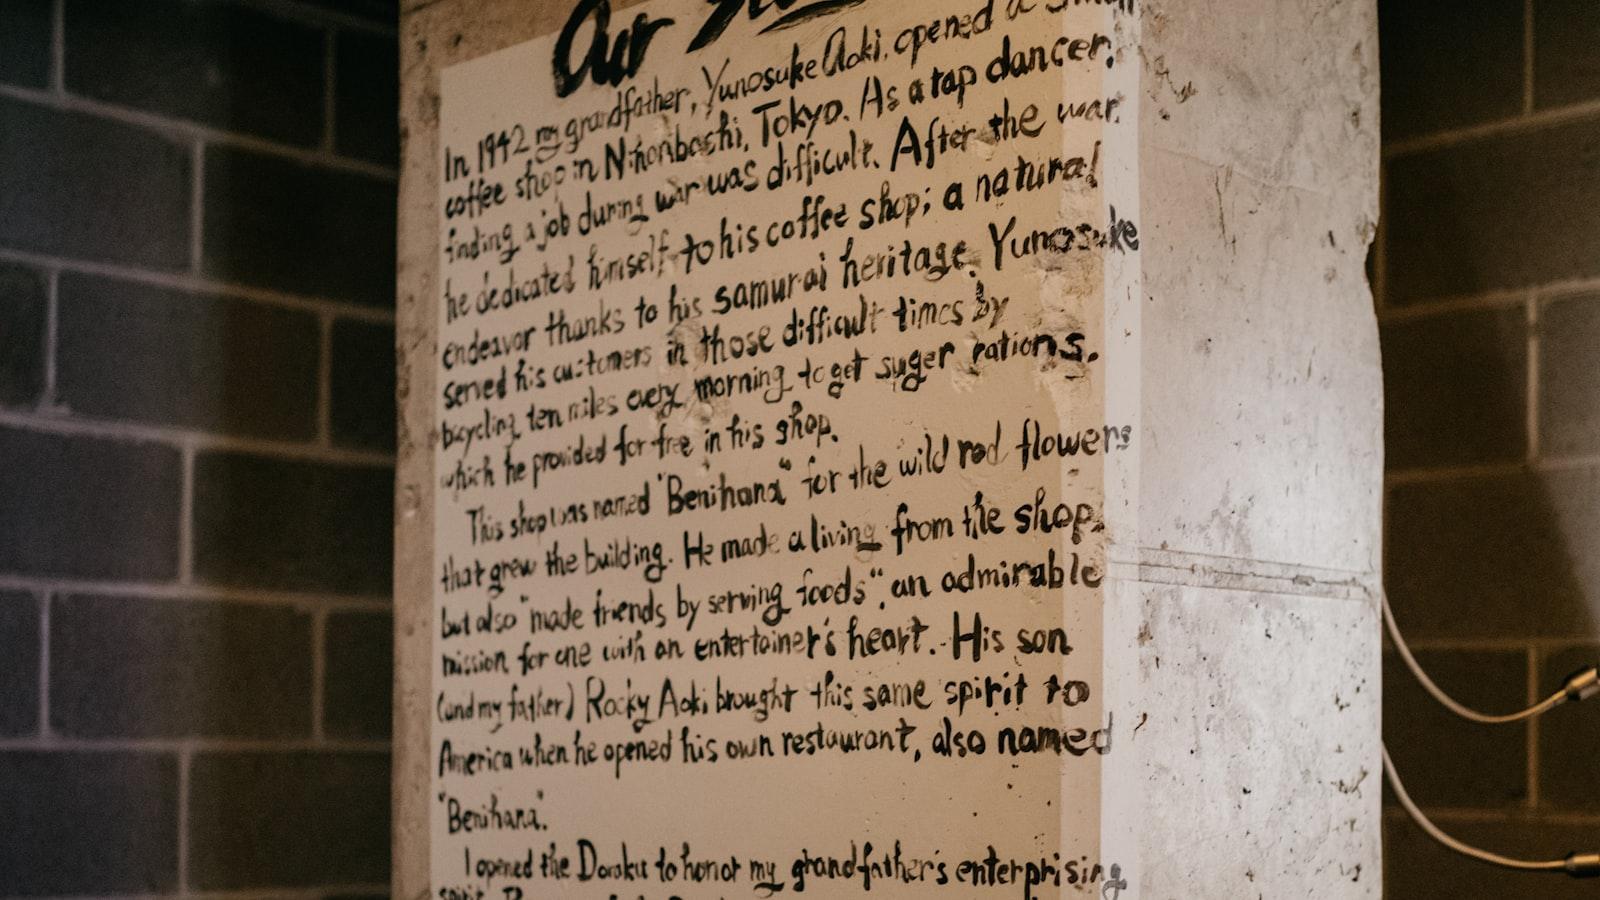 Our
In 1942 my grandfather, Yunosuke Aoki, opened a small
coffee shop in Nihonbashi, Tokyo. As a tap dancer,
finding a job during war was difficult. After the war
he dedicated himself to his coffee shop; a natural
endeavor thanks to his samurai heritage. Yunosuke
served his customers in those difficult times by
bicycling ten miles every morning to get suger rations.
which he provided for free in his shop.
This shop was named "Benihana" for the wild red flowers
that grew the building. He made a living from the shop,
but also "made friends by serving foods", an admirable
mission for one with an entertainer's heart. His son
(and my father) Rocky Aoki brought this same spirit to
America when he opened his own restaurant, also named
"Benihana".
I opened the Doraku to honor my grandfather's enterprising